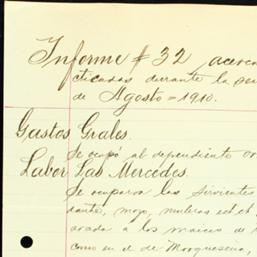 Informe # 32, acerca
cticadas durante la se
de Agosto = 1910.
Gastos Grales.
Se ocupó al dependiente or
Labor Las Mercedes.
Se ocuparon los sirvientes
dante, mozo, muleros
arada a los maices de
como en el de